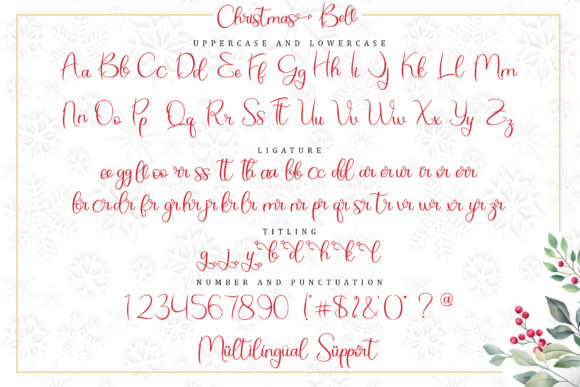 Christmas Bell
UPPERCASE AND LOWERCASE
Aa Bb Cc Dd Ee Ff Gg Hh Ii Jj Kk Ll Mm
Nn Oo Pp Qq Rr Ss Tt Uu Vv Ww Xx Yy Zz
LIGATURE
ee gg ll oo rr ss tt th aa bb cc dd ar er ur ir or err
br cr dr fr gr hr jr kr lr mr nr pr qr sr tr vr wr xr yr zr
TITLING
g j y b d h k l
NUMBER AND PUNCTUATION
1234567890 (!"#$%&'()" ? @
Multilingual Support